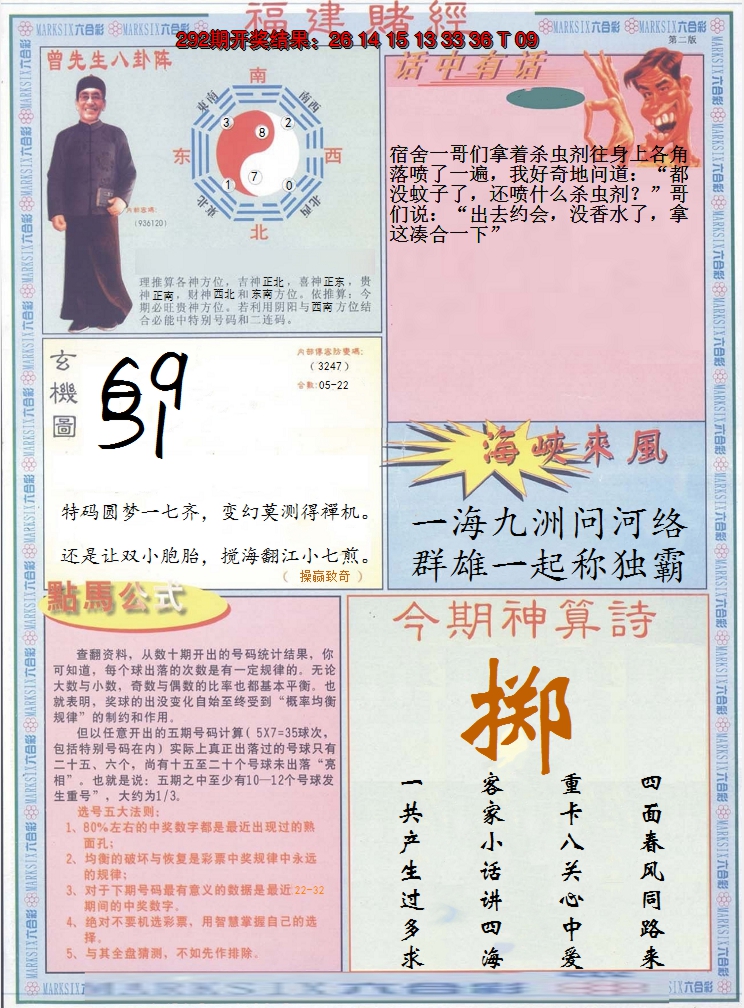 福建賭經
292期开奖结果：26 14 15 13 33 36 T 09
第二版
MARKSIX六合彩
曾先生八卦阵
南
东南
南西
3
8
2
东
西
1
7
0
東北
北西
北
内部密碼:
(936120)
理推算各神方位，吉神正北，喜神正东，贵
神正南，财神西北和东南方位。依推算：今
期必旺贵神方位。若利用阴阳与西南方位结
合必能中特别号码和二连码。
话中有话
宿舍一哥们拿着杀虫剂往身上各角
落喷了一遍，我好奇地问道：“都
没蚊子了，还喷什么杀虫剂？”哥
们说：“出去约会，没香水了，拿
这凑合一下”
玄機圖
(3247)
合數:05-22
特码圆梦一七齐，变幻莫测得禪机。
还是让双小胞胎，搅海翻江小七煎。
（ 操赢致奇 ）
海峽來風
一海九洲问河络
群雄一起称独霸
點馬公式
查翻资料，从数十期开出的号码统计结果，你
可知道，每个球出落的次数是有一定规律的。无论
大数与小数，奇数与偶数的比率也都基本平衡。也
就表明，奖球的出没变化自始至终受到“概率均衡
规律”的制约和作用。
但以任意开出的五期号码计算( 5X7=35球次，
包括特别号码在内) 实际上真正出落过的号球只有
二十五、六个，尚有十五至二十个号球未出落“亮
相”。也就是说：五期之中至少有10—12个号球发
生重号”，大约为1/3。
选号五大法则：
1、80%左右的中奖数字都是最近出现过的熟
面孔；
2、均衡的破坏与恢复是彩票中奖规律中永远
的规律；
3、对于下期号码最有意义的数据是最近22-32
期间的中奖数字。
4、绝对不要机选彩票，用智慧掌握自己的选
择。
5、与其全盘猜测，不如先作排除。
今期神算詩
掷
四面春风同路来
重卡八关心中爱
客家小话讲四海
一共产生过多求